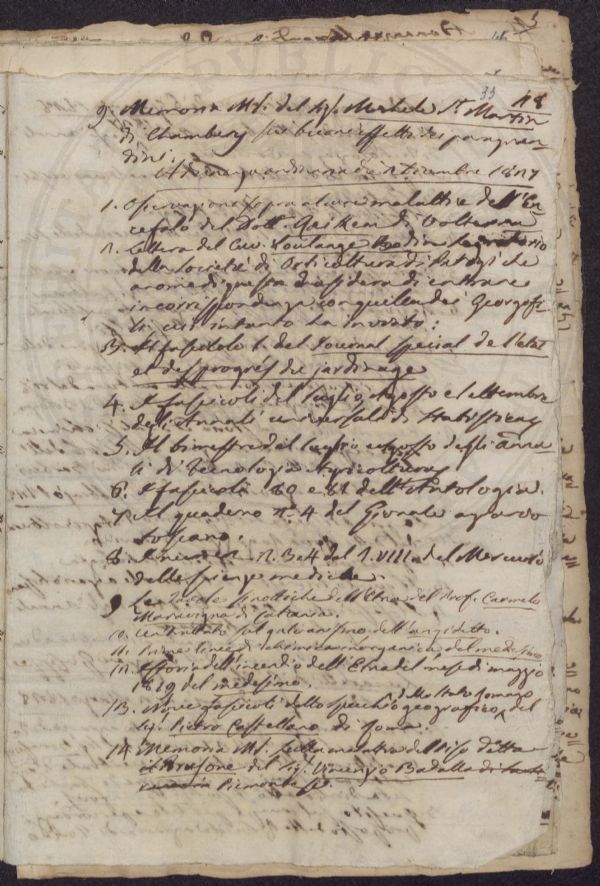 33
48
9. Memoria MS. del Sig. Michele St. Martin
di Chambery sui buoni effetti dei paragran-
dini.
Adunanza di Dicembre 1827
1. Osservazione sopra alcune malattie dell'En-
cefalo del Dott. Geiken di Volterra
2. Lettera del Cav. Soulange Bodin Segretario
della Società di Orticoltura di Parigi che
a nome di questa desidera di entrare
in corrispondenza con quella dei Georgofi-
li cui intanto ha inviato:
3. Il fascicolo 1. del Journal special de l'etat
et des progrés du jardinage
4. I fascicoli del Luglio, Agosto e Settembre
degli Annali universali di Statistica
5. Il bimestre del Luglio e Agosto degli Anna-
li di Tecnologia Agricoltura
6. I fascicoli 80 e 81 dell'Antologia.
7. Il quaderno n.° 4 del Giornale agrario
toscano.
8. I numeri n. 3 e 4 del T. VIII. del Mercurio
delle scienze mediche.
9. Le Tavole sinottiche dell'Etna del Prof. Carmelo
Maravigna di Catania.
10. Un Trattato sul galvanismo dell'anzidetto.
11. Prime linee di chimica inorganica del medesimo
12. Istoria dell'incendio dell'Etna del mese di maggio
1819 del medesimo.
13. Nove fascicoli dello specchio geografico dello Stato Romano del
Sig. Pietro Castellano di Roma.
14. Memoria MS. sulla malattia del Riso detta
il Brusone del Sig. Vincenzo Badalla di
Piemontese.